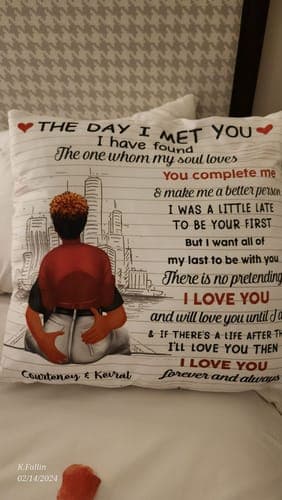 THE DAY I MET YOU
I have found
The one whom my soul loves
You complete me
& make me a better person
I WAS A LITTLE LATE
TO BE YOUR FIRST
But I want all of
my last to be with you
There is no pretending
I LOVE YOU
and will love you until I
& IF THERE'S A LIFE AFTER
I'LL LOVE YOU THEN
I LOVE YOU
forever and always
Courtney & Keiral
K.Fullin
02/14/2024